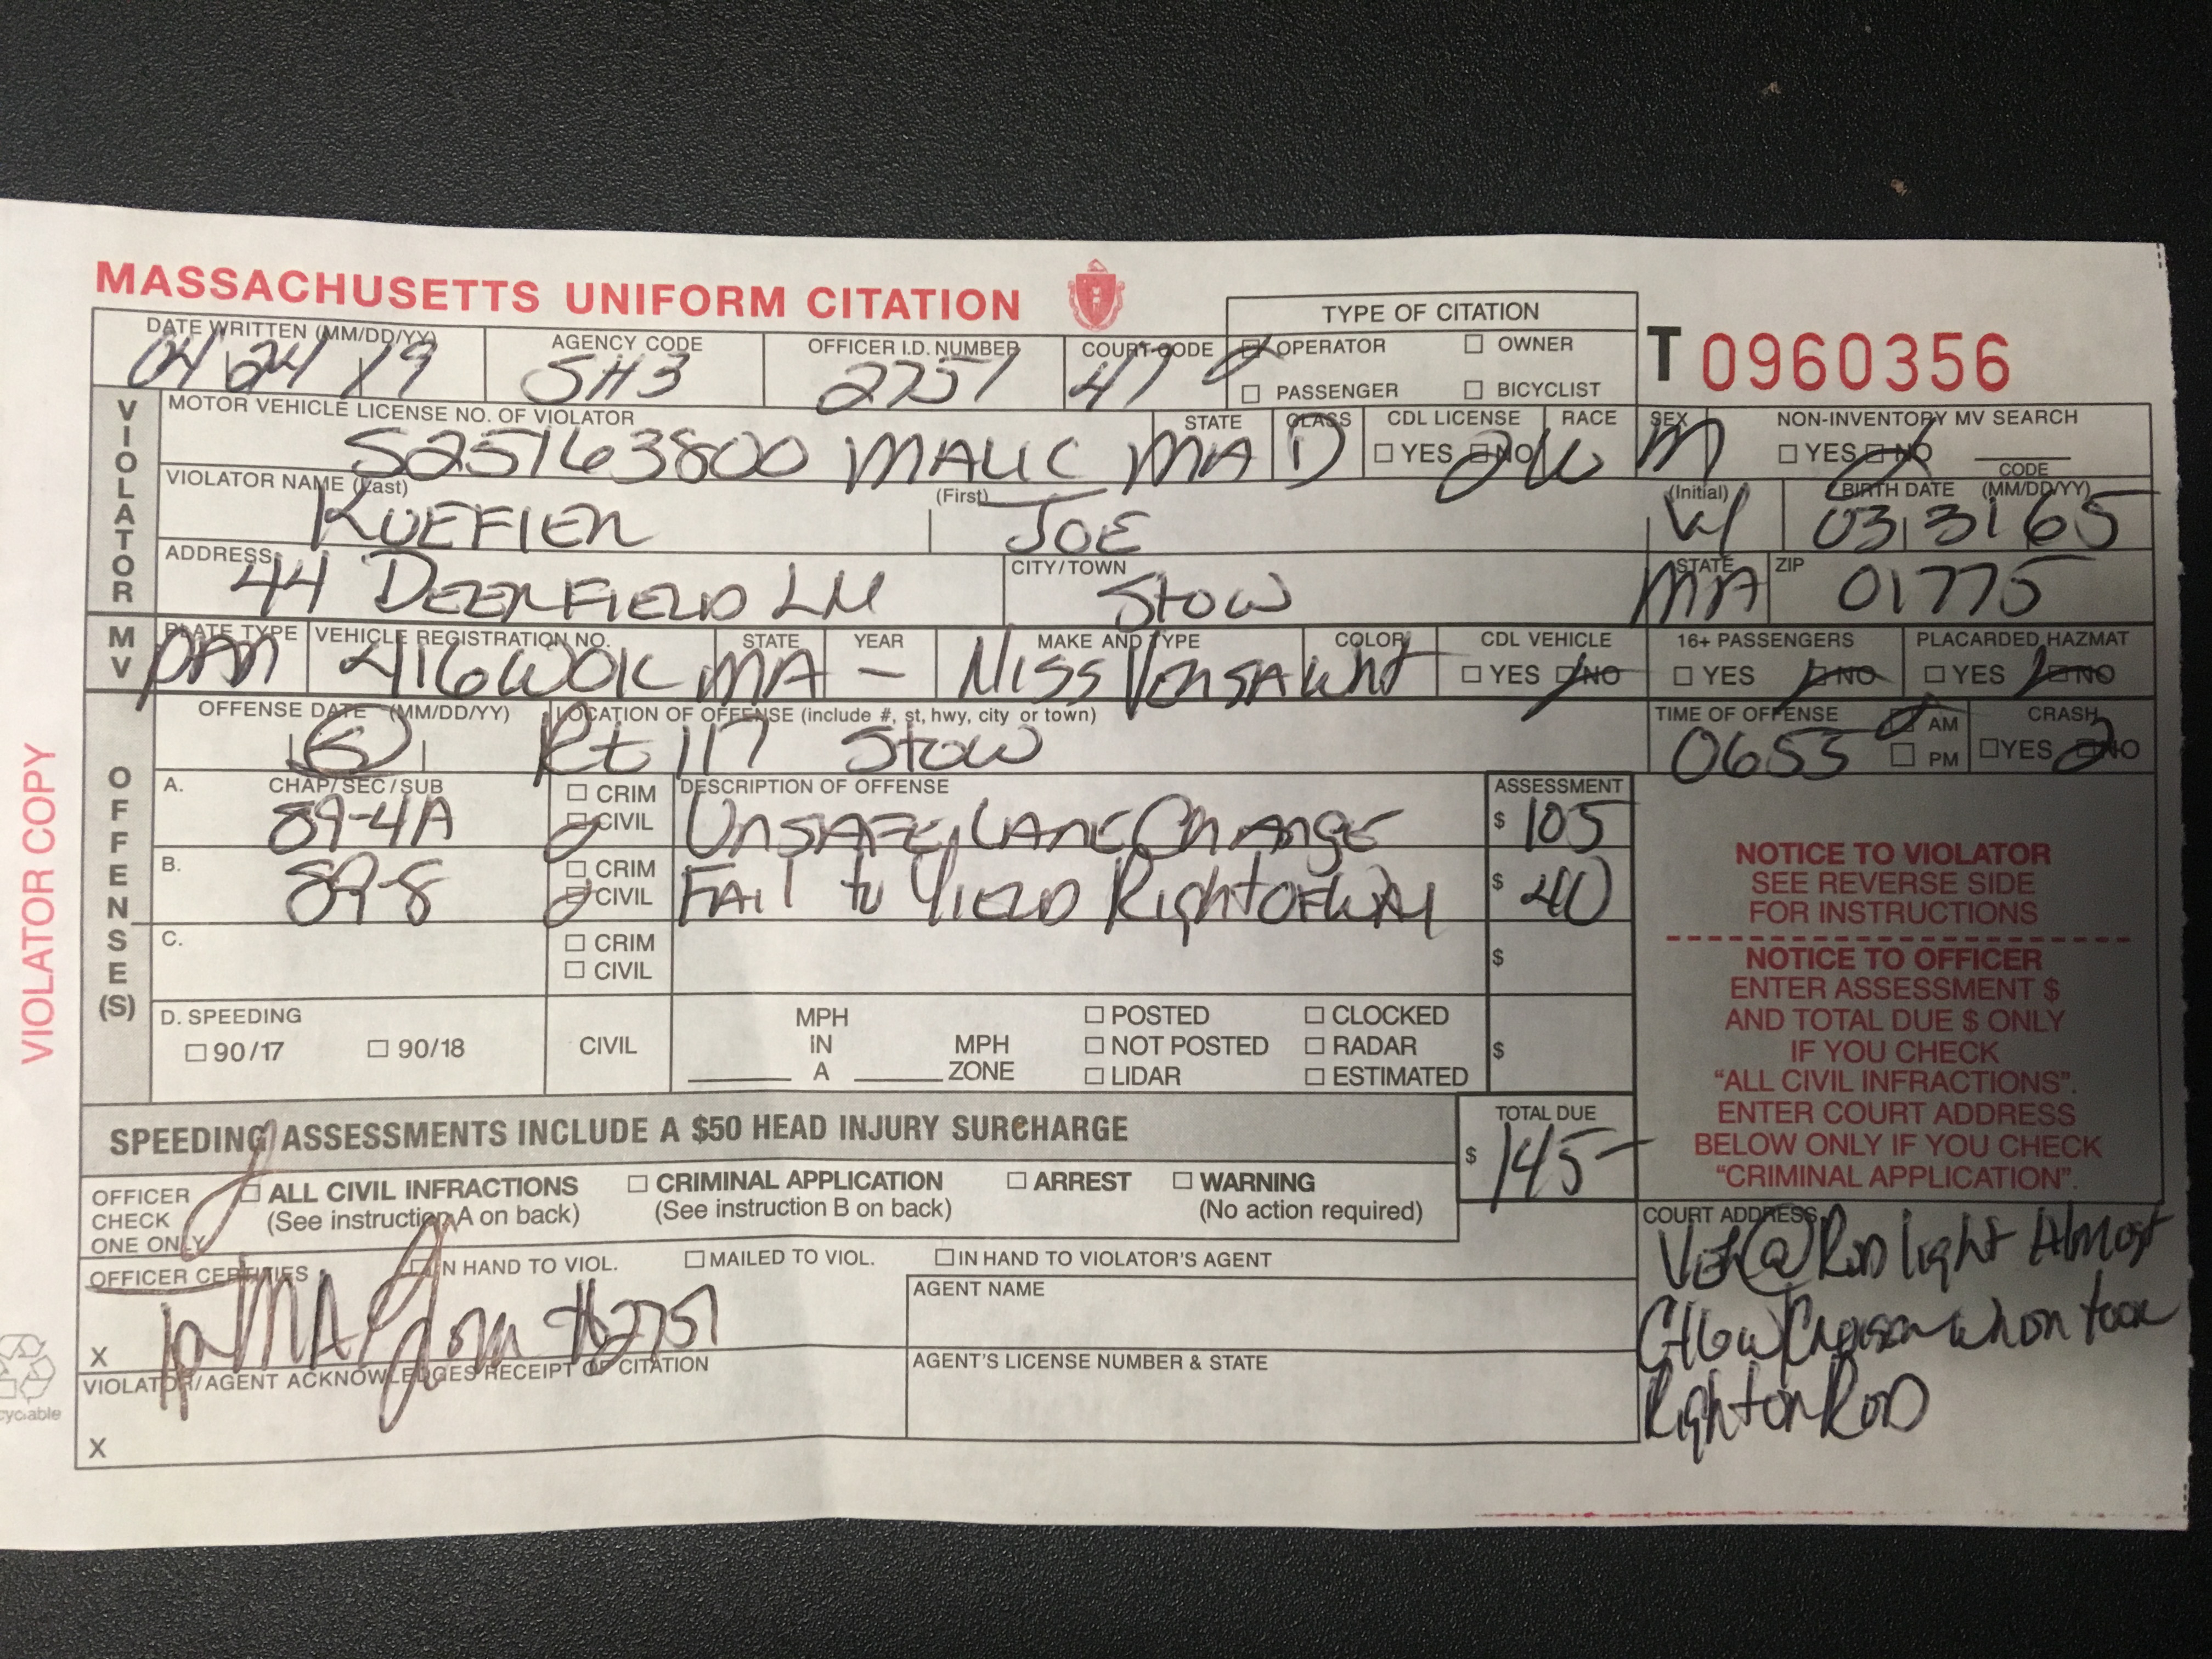 MASSACHUSETTS UNIFORM CITATION
TYPE OF CITATION
T 0960356
DATE WRITTEN (MM/DD/YY) AGENCY CODE OFFICER I.D. NUMBER COURT CODE OPERATOR OWNER
04 24 19 SH3 2757 47 PASSENGER BICYCLIST
MOTOR VEHICLE LICENSE NO. OF VIOLATOR STATE CLASS CDL LICENSE RACE SEX NON-INVENTORY MV SEARCH
S25163800 MALIC MA D YES NO W M YES NO CODE
VIOLATOR NAME (Last) (First) (Initial) BIRTH DATE (MM/DD/YY)
KUEFLER JOE W 03 31 65
ADDRESS CITY/TOWN STATE ZIP
44 DEERFIELD LN STOW MA 01775
PLATE TYPE VEHICLE REGISTRATION NO. STATE YEAR MAKE AND TYPE COLOR CDL VEHICLE 16+ PASSENGERS PLACARDED HAZMAT
PAN 416WOK MA – NISS VERSA WHT YES NO YES NO YES NO
OFFENSE DATE (MM/DD/YY) LOCATION OF OFFENSE (include #, st, hwy, city or town) TIME OF OFFENSE AM CRASH
Rt 117 Stow 0655 PM YES NO
A. CHAP/SEC/SUB CRIM DESCRIPTION OF OFFENSE ASSESSMENT
89-4A CIVIL UNSAFE LANE CHANGE $ 105
B. CRIM
89-8 CIVIL FAIL to YIELD RIGHT OF WAY $ 40
C. CRIM
CIVIL $
D. SPEEDING MPH POSTED CLOCKED
90/17 90/18 CIVIL IN MPH NOT POSTED RADAR $
A ZONE LIDAR ESTIMATED
SPEEDING ASSESSMENTS INCLUDE A $50 HEAD INJURY SURCHARGE
TOTAL DUE
$ 145–
OFFICER CHECK ONE ONLY
ALL CIVIL INFRACTIONS CRIMINAL APPLICATION ARREST WARNING
(See instruction A on back) (See instruction B on back) (No action required)
OFFICER CERTIFIES IN HAND TO VIOL. MAILED TO VIOL. IN HAND TO VIOLATOR'S AGENT
AGENT NAME
X #2757
VIOLATOR/AGENT ACKNOWLEDGES RECEIPT OF CITATION AGENT'S LICENSE NUMBER & STATE
X
NOTICE TO VIOLATOR
SEE REVERSE SIDE
FOR INSTRUCTIONS
NOTICE TO OFFICER
ENTER ASSESSMENT $
AND TOTAL DUE $ ONLY
IF YOU CHECK
"ALL CIVIL INFRACTIONS".
ENTER COURT ADDRESS
BELOW ONLY IF YOU CHECK
"CRIMINAL APPLICATION".
COURT ADDRESS
VEH @ RED light Almost
CRUISER WHEN took
Right on RED
VIOLATOR
MV
OFFENSE(S)
VIOLATOR COPY